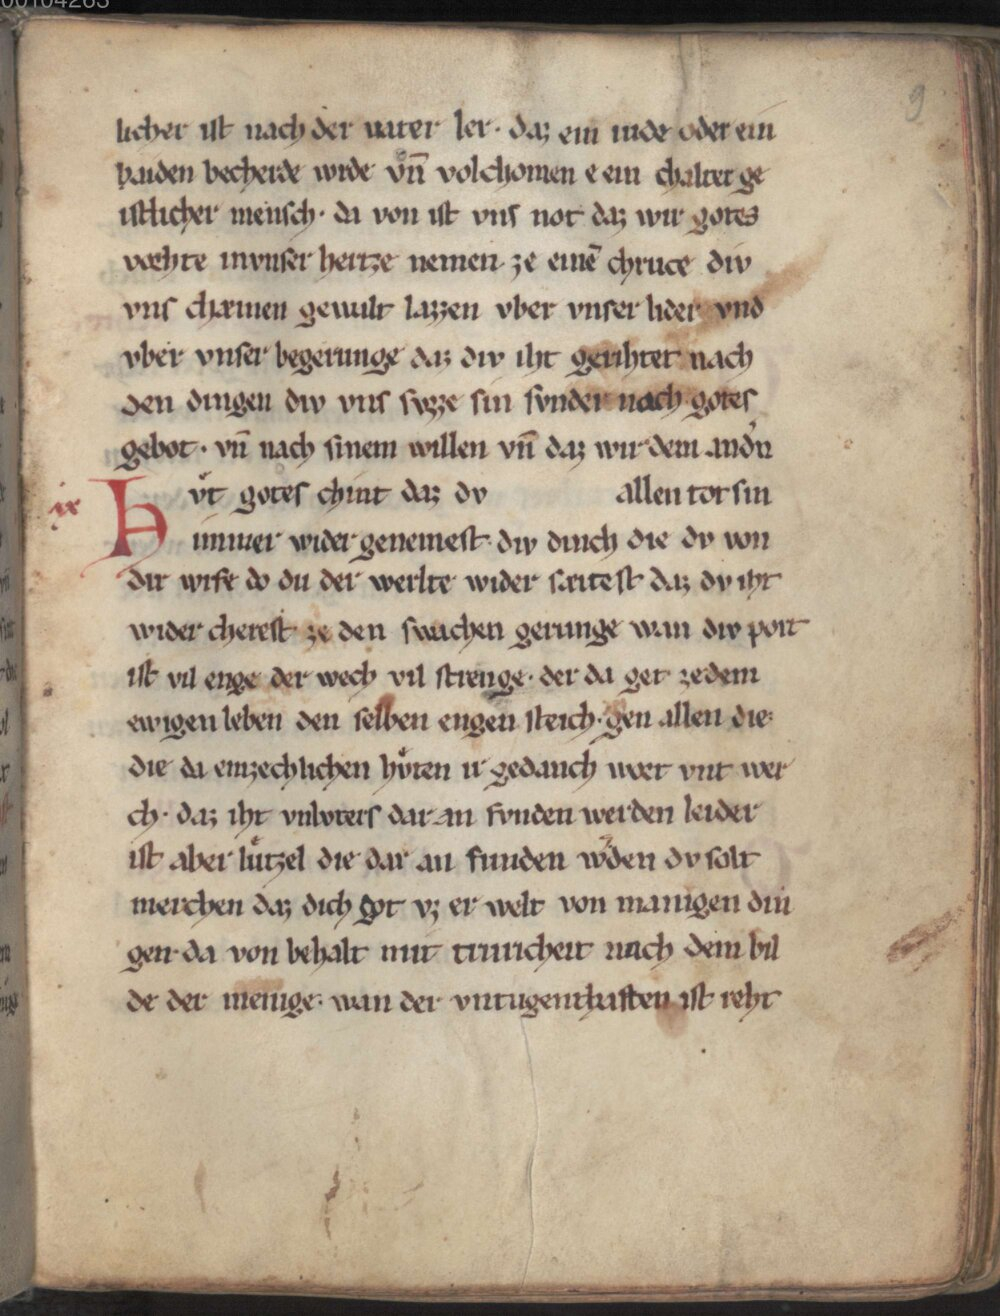 00104263
9
licher ist nach der vater ler· daz ein iude oder ein
haiden becherde wrde vn̄ volchomen e ein chalter ge
istlicher mensch· da von ist vns not daz wir gotes
vorhte in vnser hertze nemen ze einē chruce div
vns chæinen gewalt lazzen vber vnser lider vnd
vber vnser begerunge daz div iht gerihtet nach
den dingen div vns svzze sin svnder nach gotes
gebot· vn̄ nach sinem willen vn̄ daz wir dem
ix
Hvͦt gotes chint daz dv allen tot sin
immer wider genemest· div dinch die dv von
dir wrfe do du der werlte wider sæitest daz dv iht
wider cherest ze den swachen gerunge wan div port
ist vil enge der wech vil strenge· der da get ze dem
ewigen leben den selben engen steich· gen allen die·
die da emzechlichen hvͦten ir gedanch wort vnt wer
ch· daz iht vnlvters dar an fvnden werden leider
ist aber lvͤtzel die dar an funden wͤden dv solt
merchen daz dich got vz er welt von manigen din
gen· da von behalt mit triwicheit nach dem bil
de der menige· wan der vntugenthaften ist reht